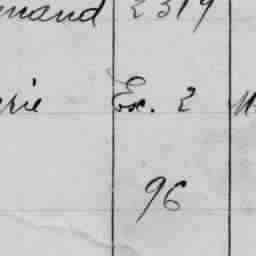 mand 2319
rie Ex. 2
96